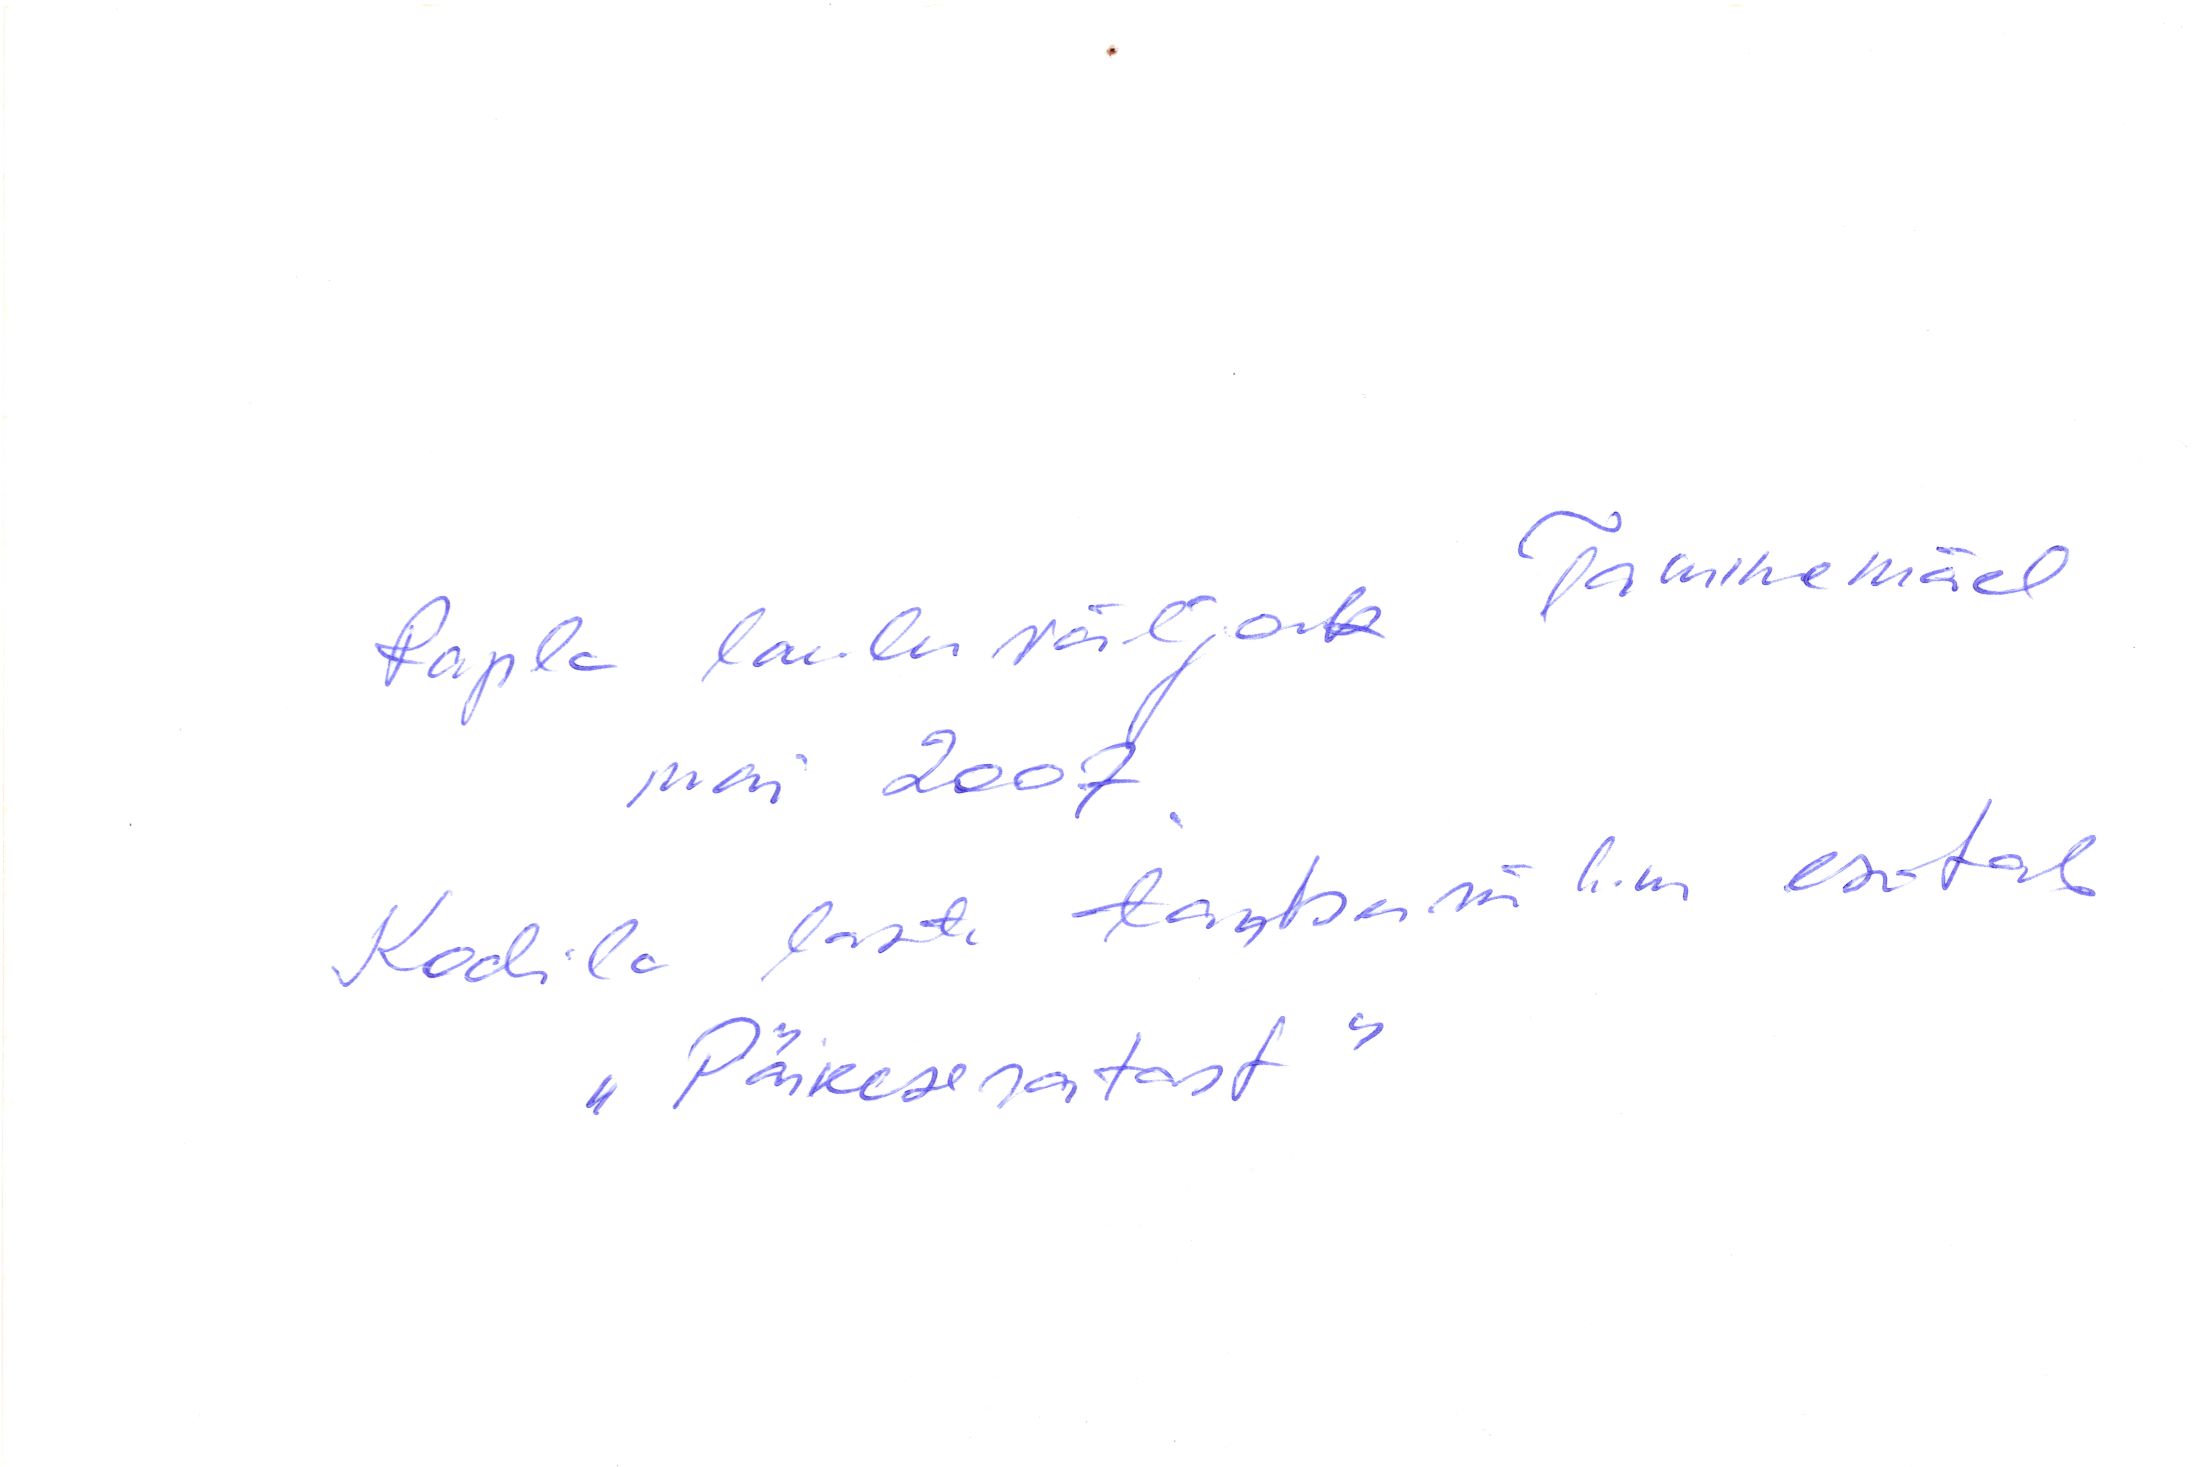 Rapla lauluväljak Tammemäel
mai 2007
Kodila laste tantsurühm esitab
„Päikeseratast”